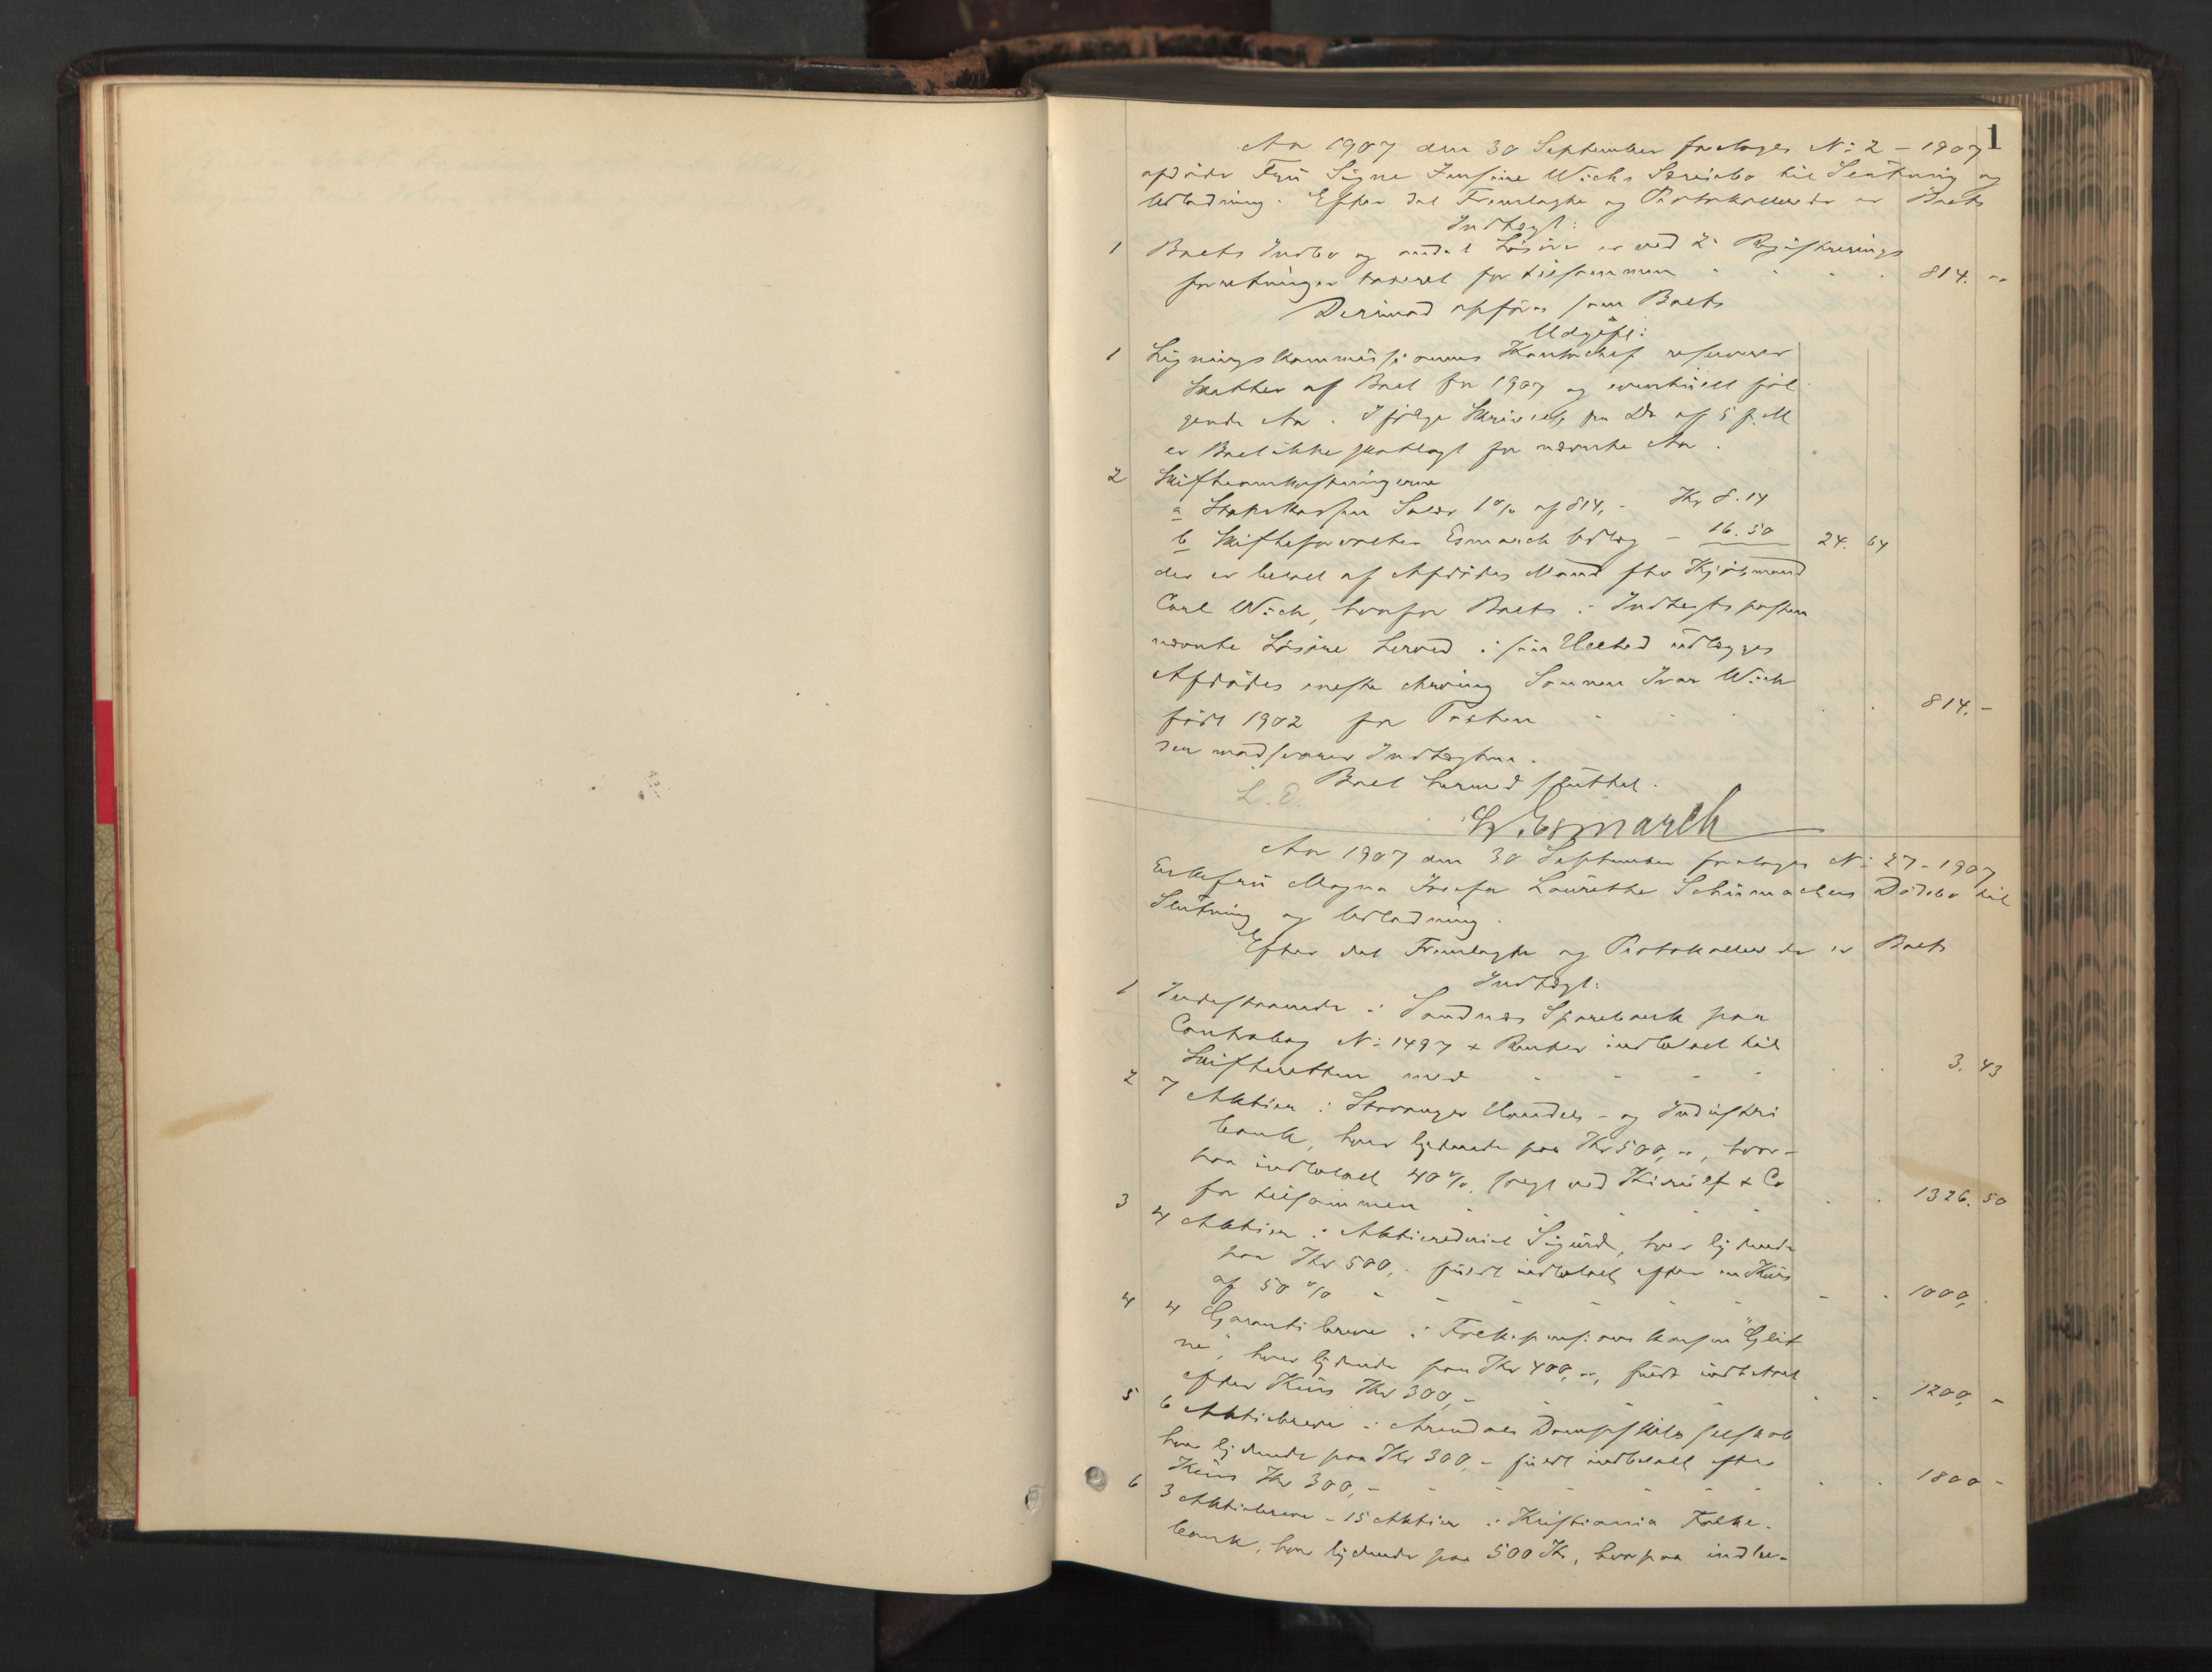 1
Aar 1907 den 30 September foretages No 2 - 1907
afdøde Fru Signe Jensine Wichs Særeiebo til Slutning og
Udlodning. Efter det Fremlagte og Protokollerede er Boets
Indtægt:
1 Boets Indbo og andet Løsøre er ved 2 Registrerings
forretninger taxeret for tilsammen 814. -
Derimod opføres som Boets
Udgift:
1 Ligningskommissionens Kontorchef reserverer
Skatter af Boet for 1907 og eventuelt føl
gende Aar. Ifølge Skrivelse fra Do af 5 f.M
er Boet ikke skatlagt for nævnte Aar.
2 Skifteomkostningerne
a Statskassen Salær 1% af 814, - Kr 8.14
b Skifteforvalter Esmarch Udlæg - 16.50 24. 64
der er betalt af Afdødes Mand fhv Kjøbmand
Carl Wich, hvorfor Boets i Indtægtsposten
nævnte Løsøre herved i sin Helhed udlægges
Afdødes eneste Arving Sønnen Ivar Wich
født 1902 for Taxten 814. -
der modsvarer Indtægten.
Boet hermed sluttet.
L. E.
Esmarch
Aar 1907 den 30 September foretages No 27 - 1907
Enkefru Magna Josefa Laurethe Schumachers Dødsbo til
Slutning og Udlodning.
Efter det Fremlagte og Protokollerede er Boets
Indtægt:
1 Indestaaende i Sandnes Sparebank paa
Contrabog No 1497 + Renter indbetalt til
Skifteretten med 3. 43
2 7 Aktier i Stavanger Handels - og Industri
bank, hver lydende paa Kr 500, -, hvor-
paa indbetalt 40%, solgt ved Kierulf & Co
for tilsammen 1326. 50
3 4 Aktier i Aktierederiet Sigurd, hver lydende
paa Kr 500, - fuldt indbetalt efter en Kurs
af 50 % 1000,
4 4 Garantibreve i Folkepensionskassen "Glit
ne", hver lydende paa Kr 400, -, fuldt indbetalt
efter Kurs Kr 300, - 1200, -
5 6 Aktiebreve i Arendals Dampskibsselskab
hver lydende paa Kr 300, - fuldt indbetalt efter
Kurs Kr 300, - 1800 -
6 3 Aktiebreve - 15 Aktier i Kristiania Folke-
bank, hver lydende paa 500 Kr, hvorpaa indbe-